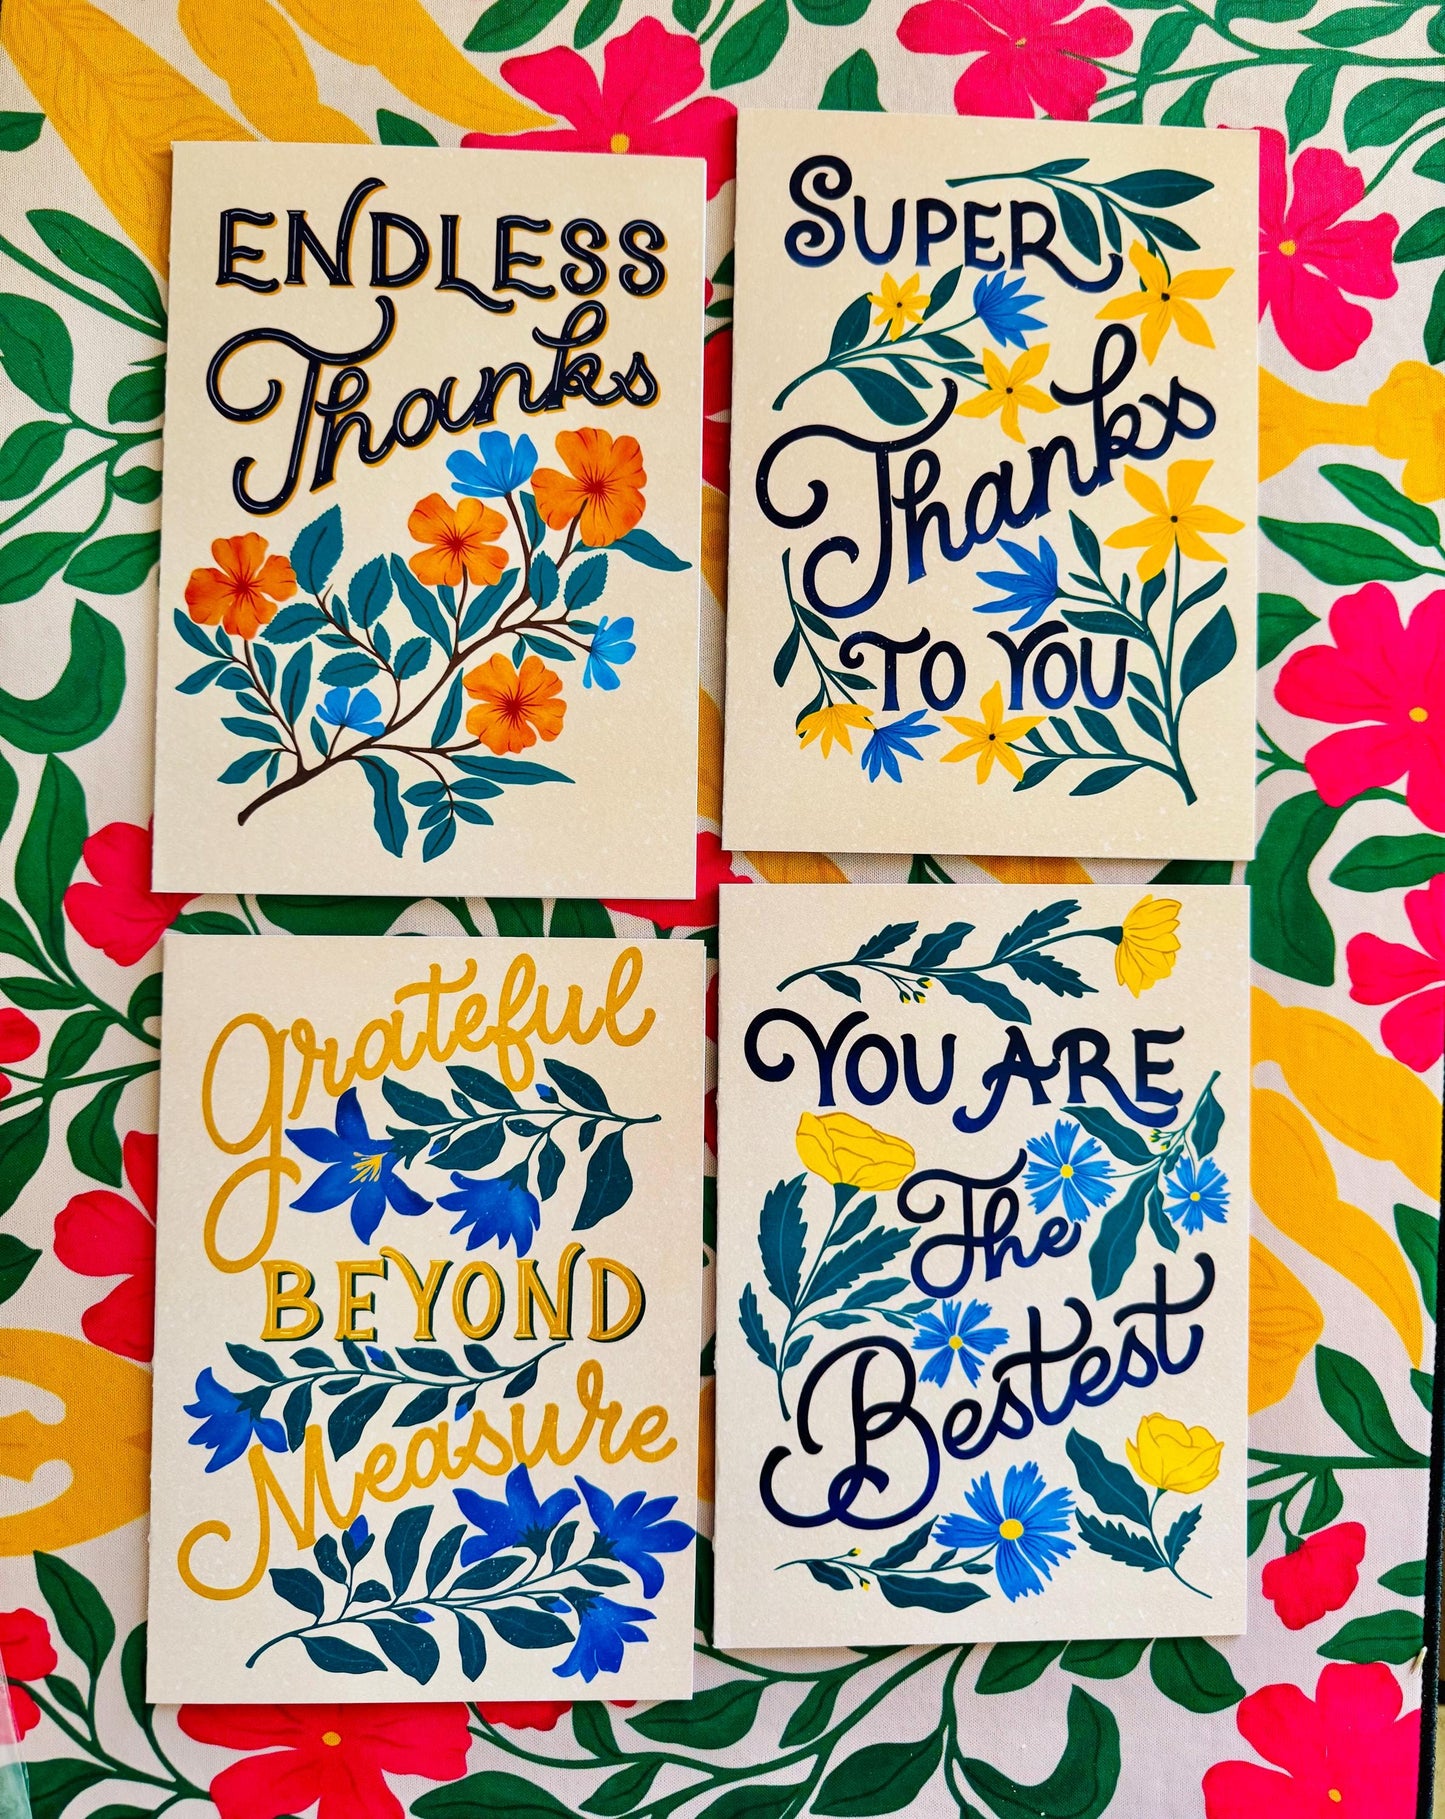 ENDLESS
Thanks
SUPER
Thanks
TO YOU
grateful
BEYOND
Measure
YOU ARE
The
Bestest